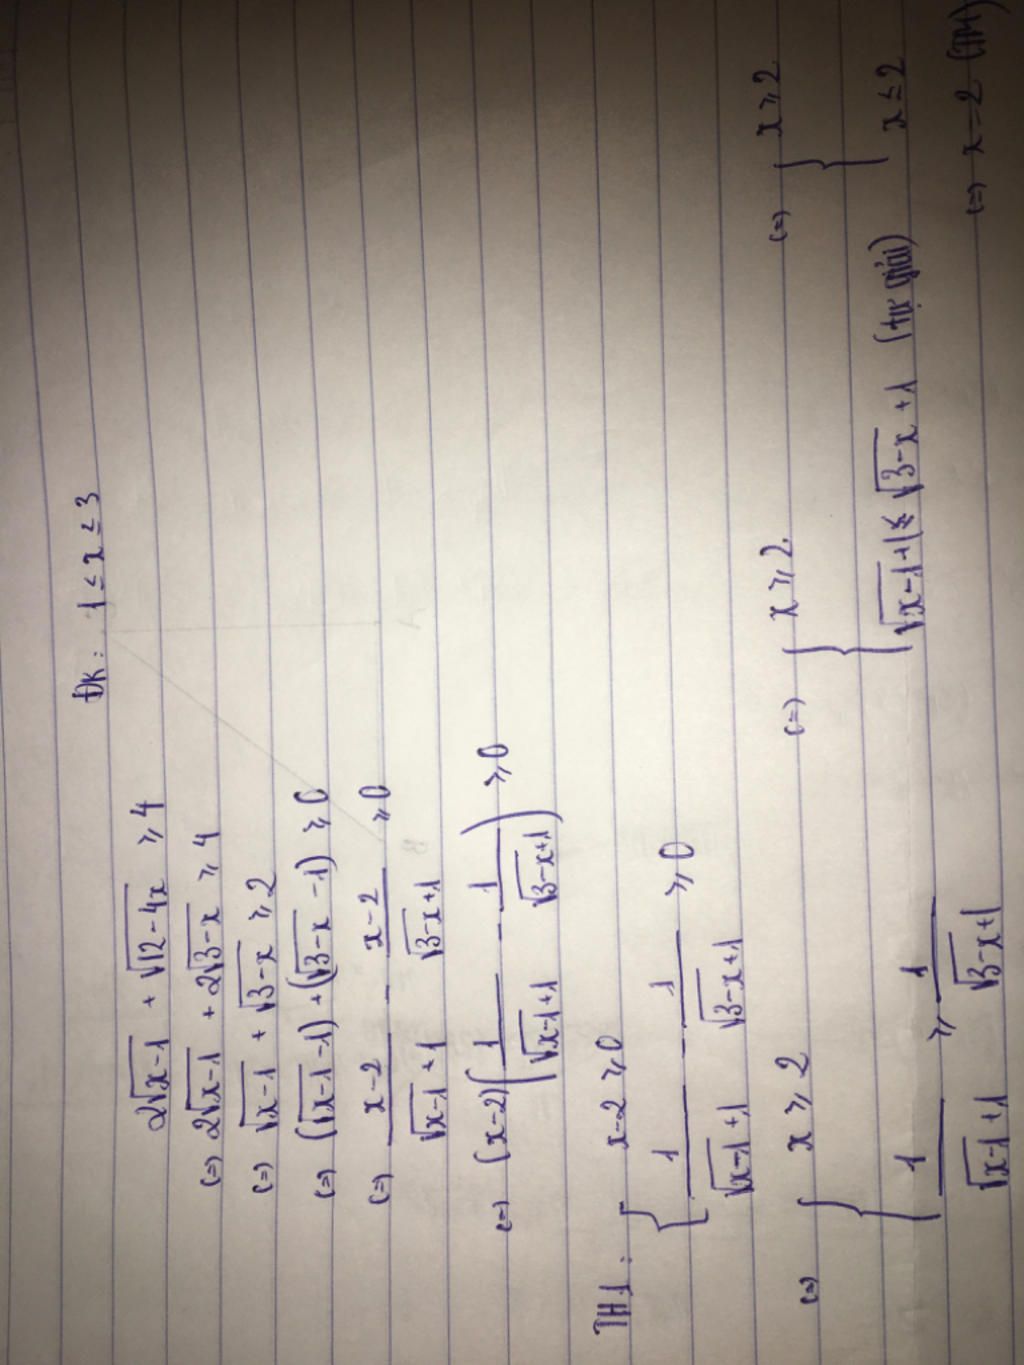 ĐK: 1 ≤ x ≤ 3
2√(x-1) + √(12-4x) ⩾ 4
(=) 2√(x-1) + 2√(3-x) ⩾ 4
(=) √(x-1) + √(3-x) ⩾ 2
(=) (√(x-1) -1) + (√(3-x) -1) ⩾ 0
(=) (x-2)/(√(x-1) +1) - (x-2)/(√(3-x)+1) ⩾ 0
(=) (x-2)(1/(√(x-1)+1) - 1/(√(3-x)+1)) ⩾ 0
TH1: { x-2 ⩾ 0
1/(√(x-1)+1) - 1/(√(3-x)+1) ⩾ 0
(=) { x ⩾ 2 (=) { x ⩾ 2. (=) { x ⩾ 2
1/(√(x-1)+1) ⩾ 1/(√(3-x)+1) √(x-1)+1 ≤ √(3-x)+1 (tự giải) x ≤ 2
(=) x=2 (TM)